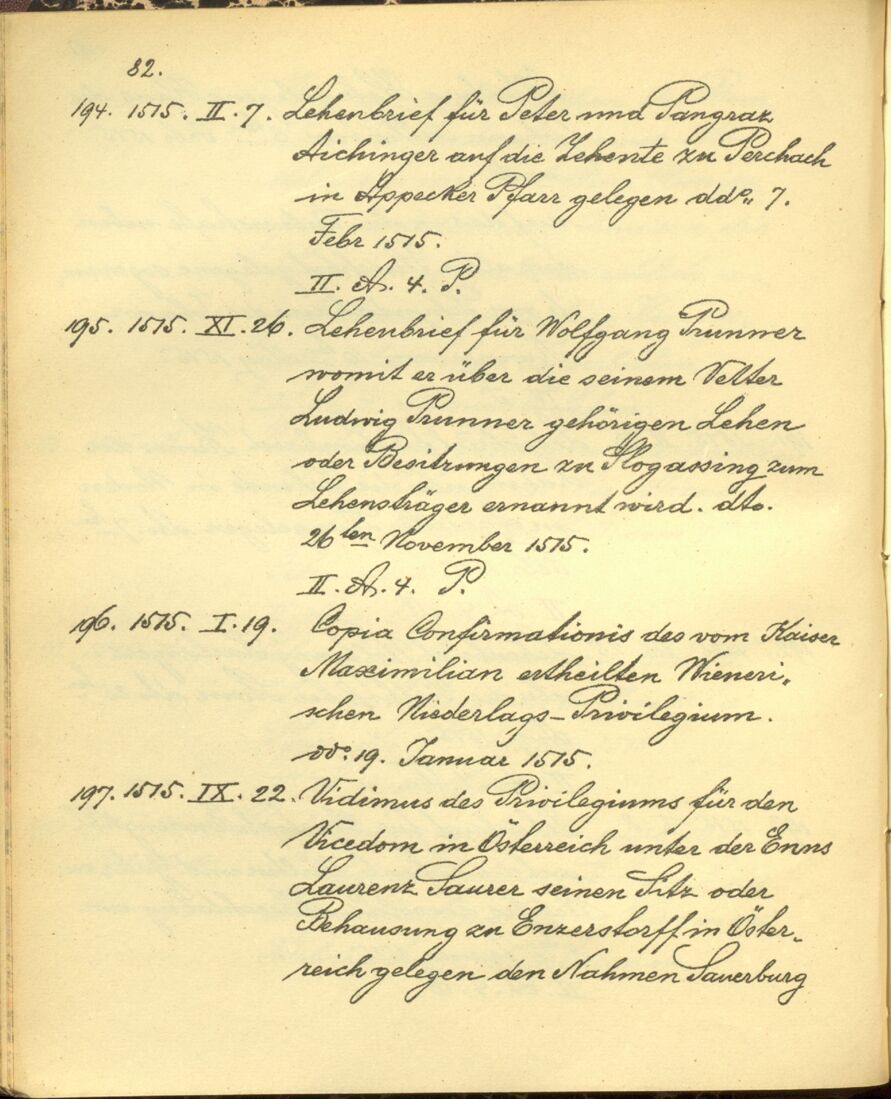 82.
194. 1515. II. 7. Lehenbrief für Peter und Pangraz
Aichinger auf die Zehente zu Perchach
in Appecker Pfarr gelegen ddo. 7.
Febr 1515.
II. A. 4. P.
195. 1515. XI. 26. Lehenbrief für Wolfgang Prunner
womit er über die seinem Vetter
Ludwig Prunner gehörigen Lehen
oder Besitzungen zu Flogassing zum
Lehensträger ernannt wird. dto.
26ten November 1515.
II. A. 4. P.
196. 1515. I. 19. Copia Confirmationis des vom Kaiser
Maximilian ertheilten Wieneri„
schen Niederlags-Privilegium.
ddo. 19. Januar 1515.
197. 1515. IX. 22. Vidimus des Privilegiums für den
Vicedom in Österreich unter der Enns
Laurenz Saurer seinen Sitz oder
Behausung zu Enzerstorff in Öster„
reich gelegen den Nahmen Sauerburg